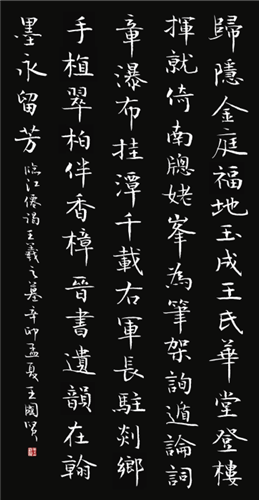 歸隱金庭福地玉成王氏華堂登樓
揮就倚南牕姥峯為筆架詢遁論詞
章瀑布挂潭千載右軍長駐剡鄉
手植翠柏伴香樟晉書遺韻在翰
墨永留芳
臨江僊謁王羲之墓辛卯孟夏王國賢